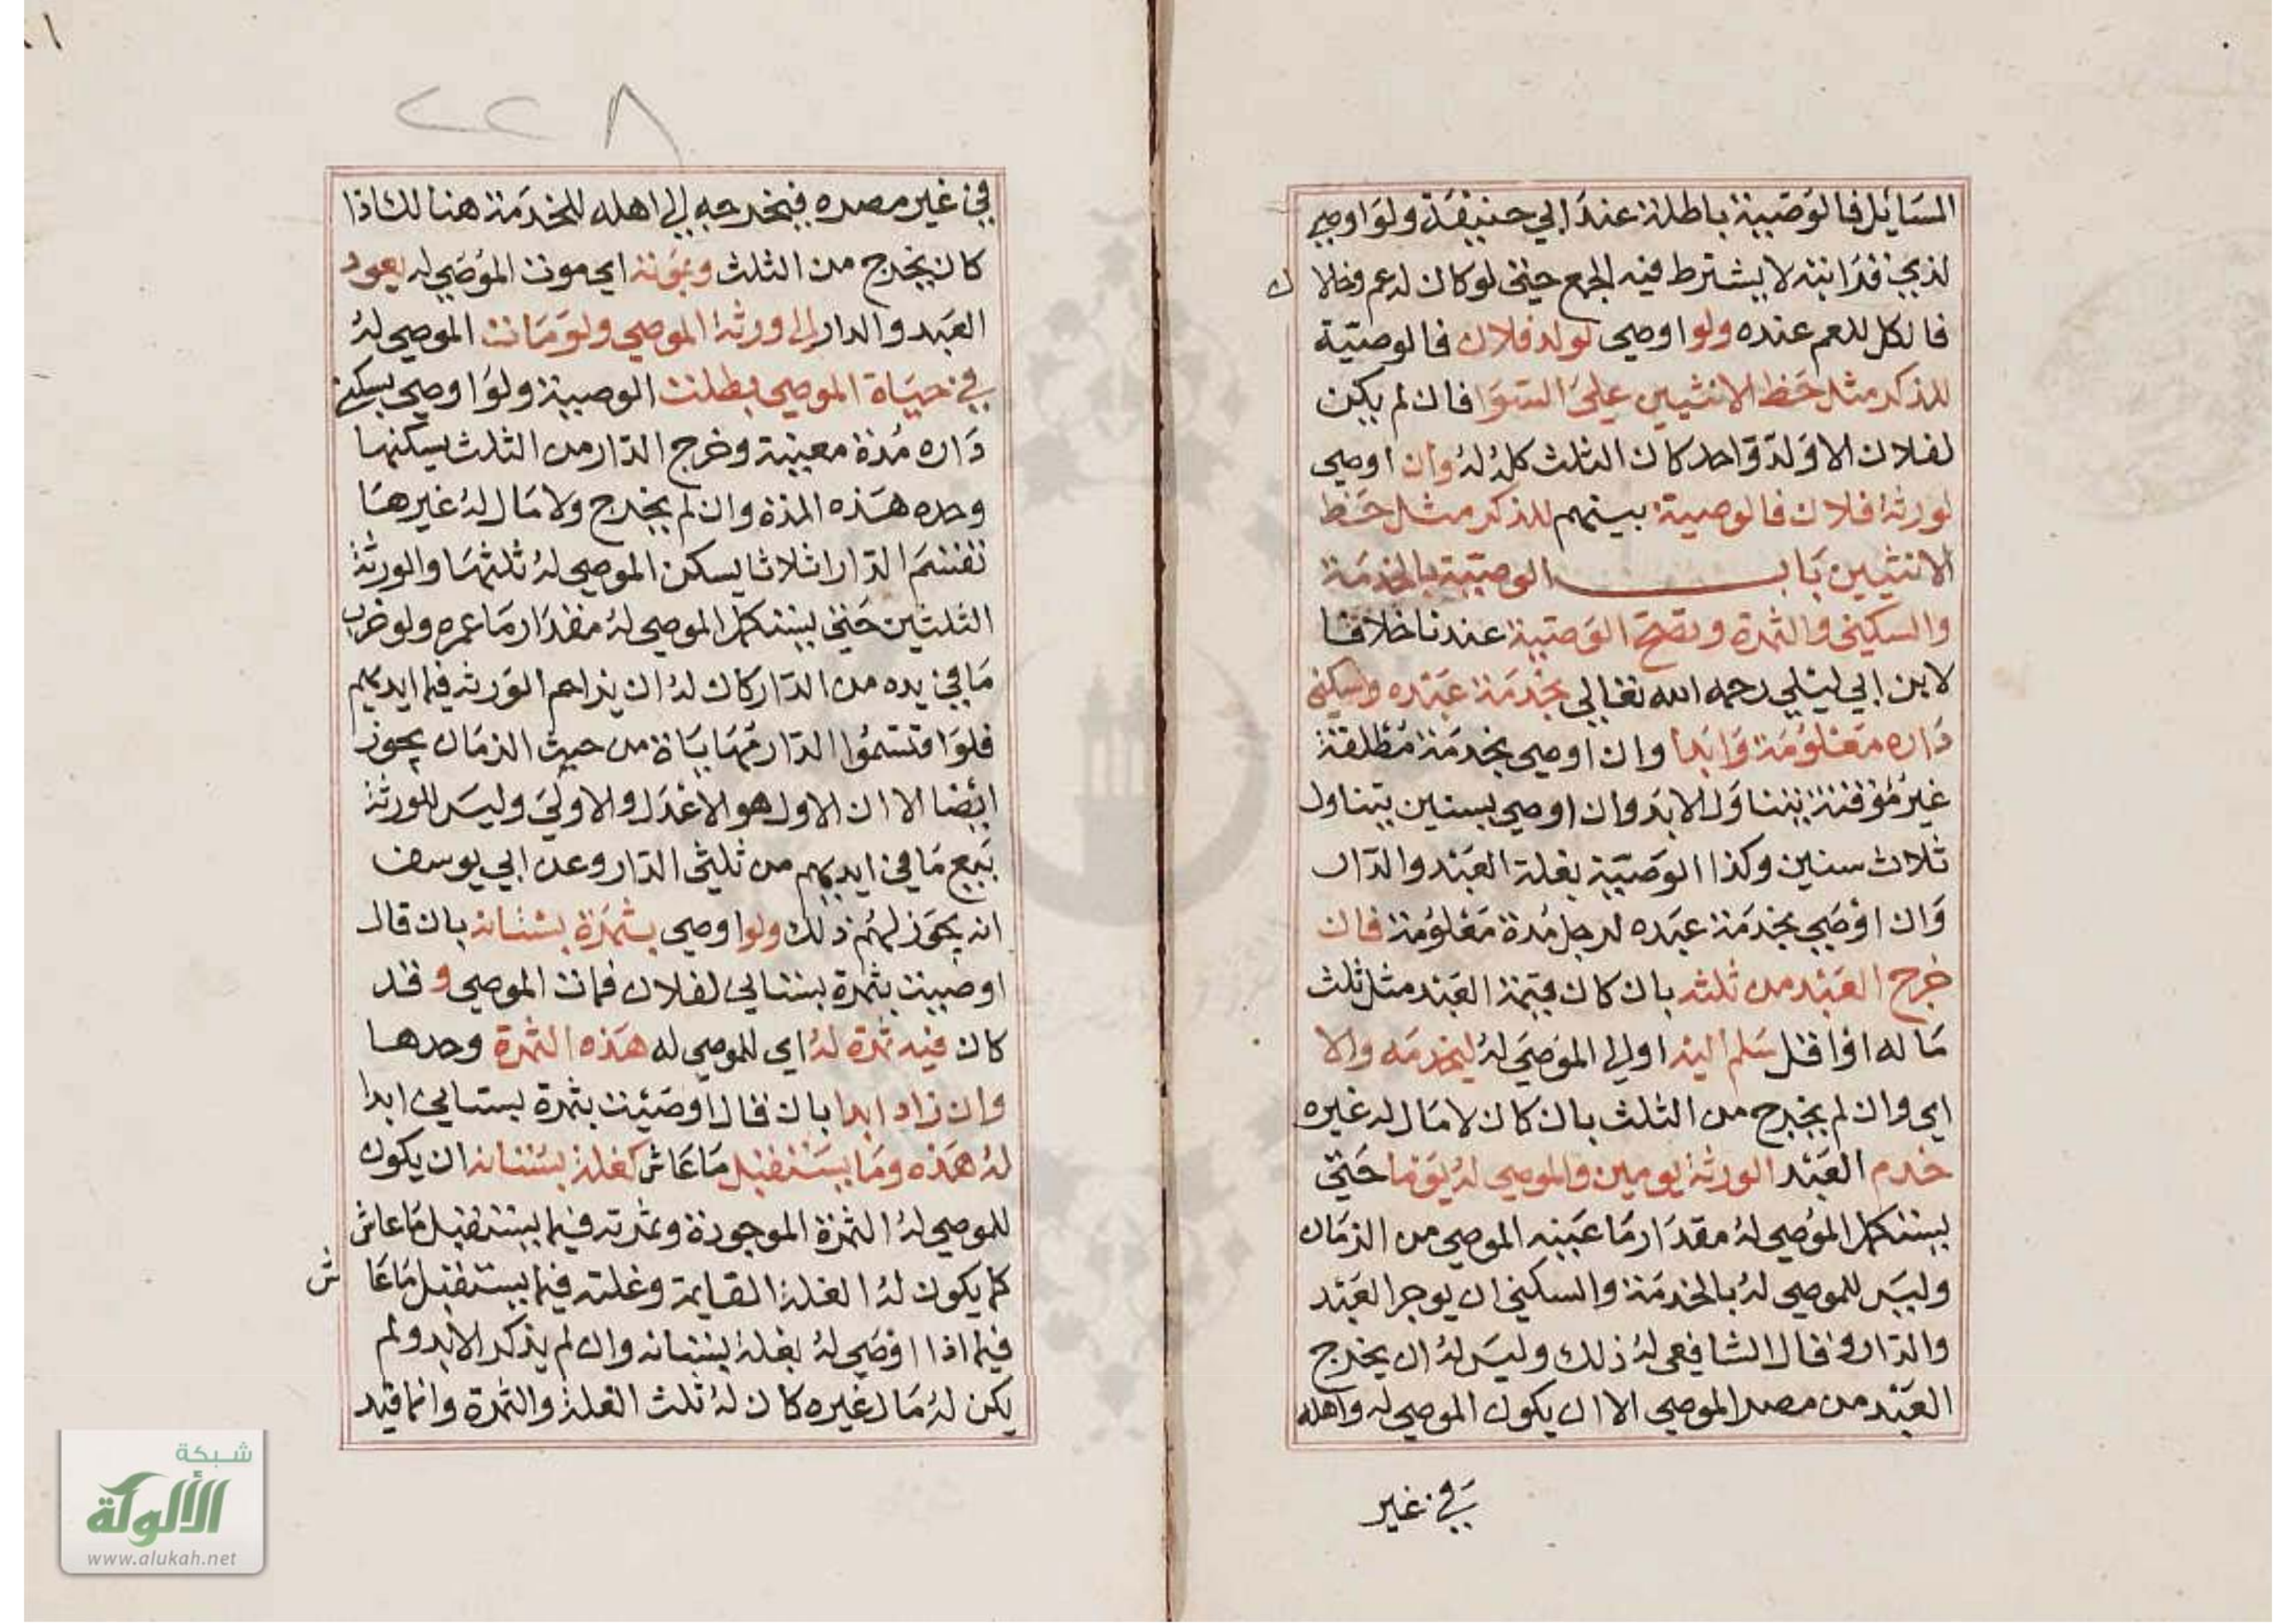 المسائل فالوصية باطلة عند ابي حنيفة ولو اوصي
لذي قرابته لا يشترط فيه الجمع حتى لو كان له عم وخالا ن
فالكل للعم عنده ولو اوصى لولد فلان فالوصية
للذكر مثل حظ الانثيين علي السوا فان لم يكن
لفلان الا ولد واحد كان الثلث كله له وان اوصى
لورثة فلان فالوصية بينهم للذكر مثل حظ
الانثيين باب الوصية بالخدمة
والسكنى والثمرة وتصح الوصية عندنا خلافا
لابن ابي ليلي رحمه الله تعالي بخدمة عبده وسكنى
داره معلومة وابدا وان اوصى بخدمة مطلقة
غير مؤقتة يتناول الابد وان اوصي بسنين يتناول
ثلاث سنين وكذا الوصية بغلة العبد والدار
وان اوصي بخدمة عبده لرجل مدة معلومة فان
خرج العبد من ثلثه بان كان قيمة العبد مثل ثلث
ماله او اقل سلم اليه اولي الموصي له ليخدمه والا
اي وان لم يخرج من الثلث بان كان لا مال له غيره
خدم العبد الورثة يومين والموصى له يوما حتى
يستكمل الموصي له مقدار ما عينه الموصي من الزمان
وليس للموصي له بالخدمة والسكنى ان يوجر العبد
والدار وقال الشافعي له ذلك وليس له ان يخرج
العبد من مصر الموصي الا ان يكون الموصي له واهله
في غير
٢٢٨
في غير مصره فيخرجه الي اهله للخدمة هنالك اذا
كان يخرج من الثلث وبموته اي موت الموصي له يعود
العبد والدار الى ورثة الموصي ولو مات الموصي له
في حياة الموصي بطلت الوصية ولو اوصي بسكنى
داره مدة معينة وخرج الدار من الثلث يسكنها
وحده هذه المدة وان لم يخرج ولا مال له غيرها
تقسم الدار اثلاثا يسكن الموصي له ثلثها والورثة
الثلثين حتى يستكمل الموصي له مقدار ما عمره ولو خرب
ما في يده من الدار كان له ان يزاحم الورثة فيما ايديهم
فلو اقتسموا الدار مهاياة من حيث الزمان يجوز
ايضا الا ان الاول هو الاعدل والاولي وليس للورثة
بيع ما في ايديهم من ثلثي الدار وعن ابي يوسف
انه يجوز لهم ذلك ولو اوصي بثمرة بستانه بان قال
اوصيت بثمرة بستاني لفلان فمات الموصي وقد
كان فيه ثمرة له اي للموصي له هذه الثمرة وحدها
وان زاد ابدا بان قال اوصيت بثمرة بستاني ابدا
له هذه وما يستقبل ما عاش كغلة بستانه ان يكون
للموصي له الثمرة الموجودة وثمرته فيما يستقبل ما عاش
كما يكون له الغلة القايمة وغلته فيما يستقبل ما عا ش
فيما اذا اوصي له بغلة بستانه وان لم يذكر الابد ولم
يكن له مال غيره كان له ثلث الغلة والثمرة وانما قيد
شبكة
الألوكة
www.alukah.net